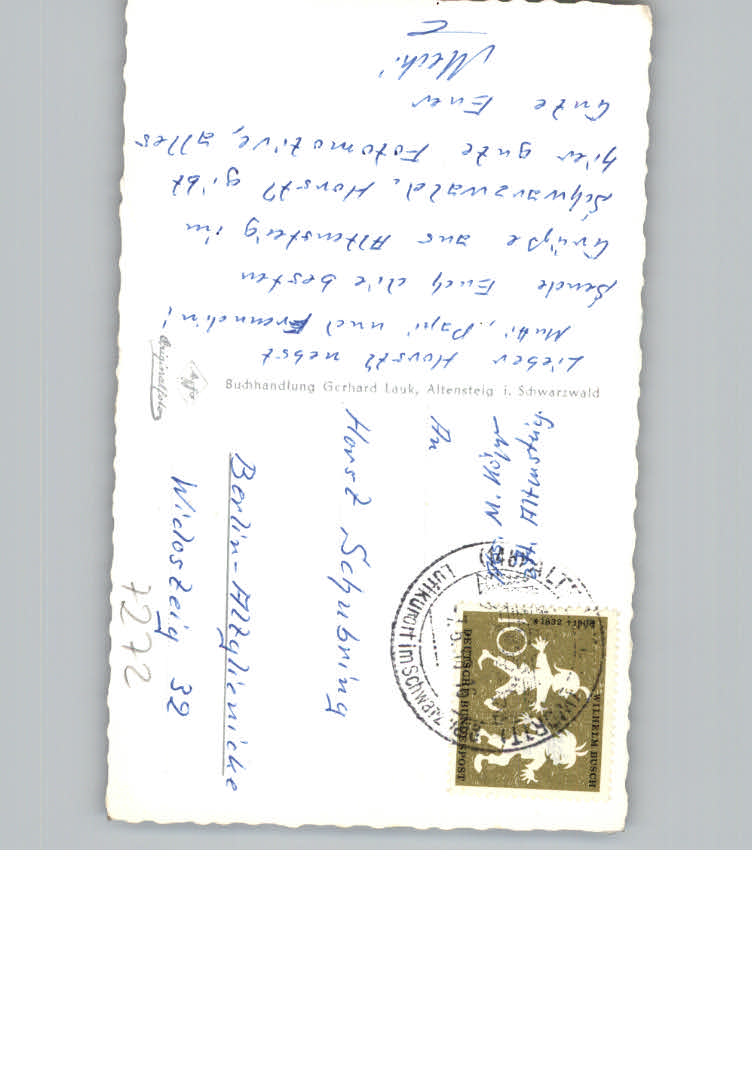 Lieber Horstl nebst
Mutti, Papi und Freundin!
Sende Euch die besten
Grüße aus Altensteig im
Schwarzwald. Horstl gibt
hier gute Fotomotive, alles
Gute Euer
Mechi
Buchhandlung Gerhard Lauk, Altensteig i. Schwarzwald
Originalfoto
Altensteig
An
Horst Schubring
Berlin-Altglienicke
Wideszeig 32
7272
WILHELM BUSCH
DEUTSCHE BUNDESPOST
10
*1832 †1908
(14b) ALTE
Luftkurort im Schwarz